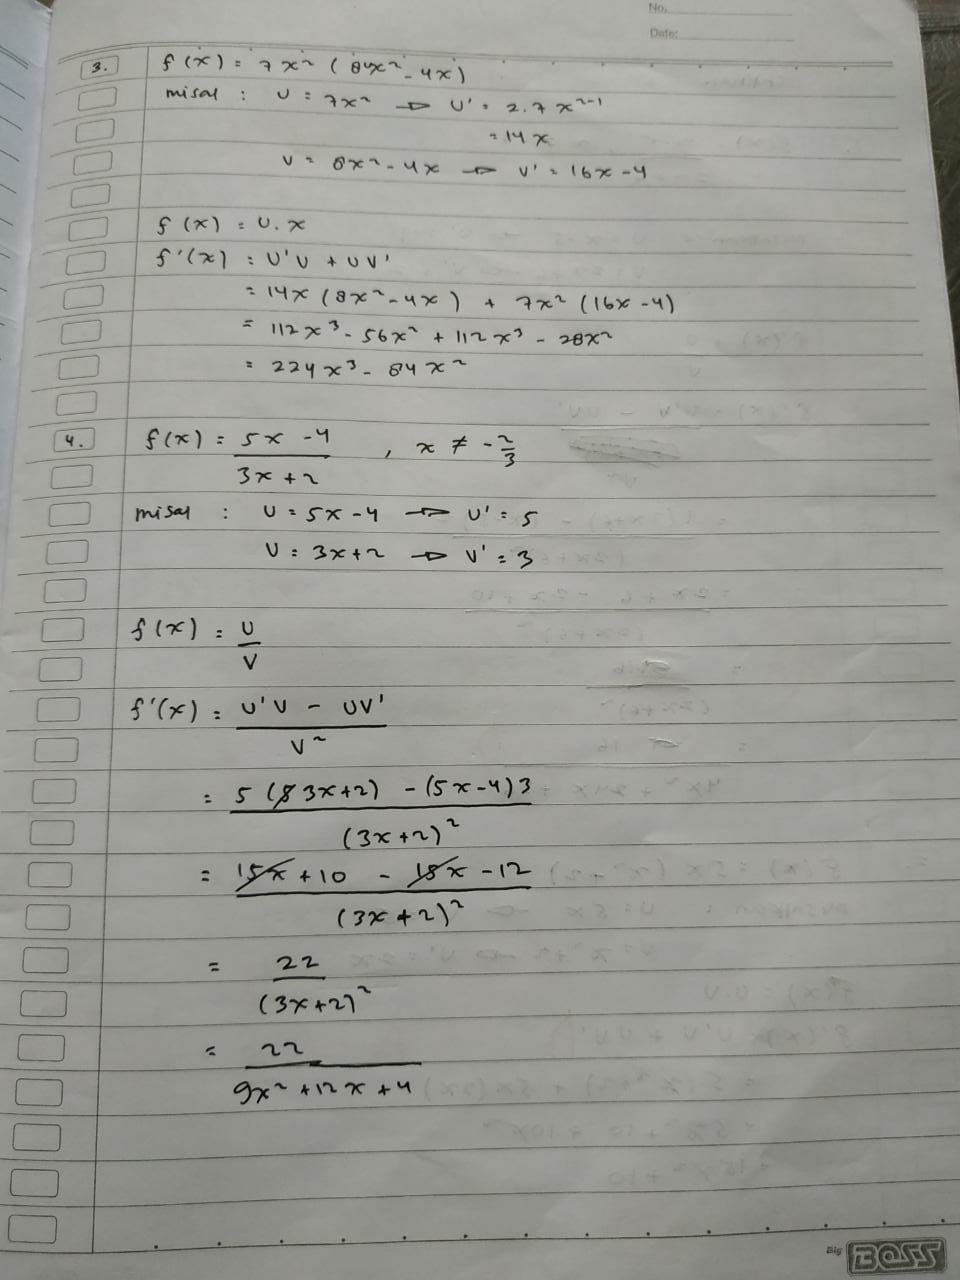 No.
Date:
3. f(x) = 7x² (84x² - 4x)
misal : U = 7x² → U' = 2.7x²⁻¹
= 14x
V = 8x² - 4x → V' = 16x - 4
f(x) = U.x
f'(x) = U'U + UV'
= 14x (8x² - 4x) + 7x² (16x - 4)
= 112x³ - 56x² + 112x³ - 28x²
= 224x³ - 84x²
4. f(x) = 5x - 4 , x ≠ - 2/3
3x + 2
misal : U = 5x - 4 → U' = 5
U = 3x + 2 → V' = 3
f(x) = U
V
f'(x) = U'V - UV'
V²
= 5 (8 3x+2) - (5x-4)3
(3x+2)²
= 15x + 10 - 15x - 12
(3x+2)²
= 22
(3x+2)²
= 22
9x² + 12x + 4
Big BOSS